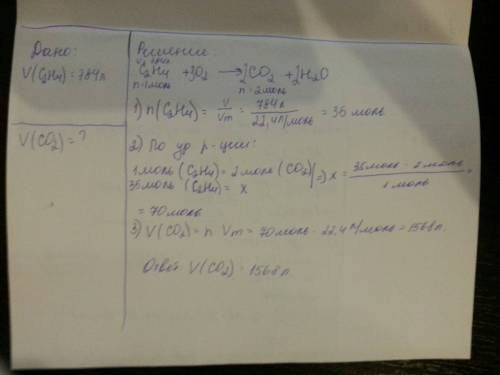 Дано:
V(C2H4) = 784л
V(CO2) = ?
Решение:
C2H4 + 3O2 → 2CO2 + 2H2O
n=1моль n=2моль
1) n(C2H4) = V/Vm = 784л/22,4л/моль = 35 моль
2) По ур р-ции:
1моль (C2H4) = 2моль (CO2) | => x = 35моль · 2моль / 1моль =
35моль (C2H4) = x
= 70моль
3) V(CO2) = n · Vm = 70моль · 22,4л/моль = 1568л.
Ответ: V(CO2) = 1568л